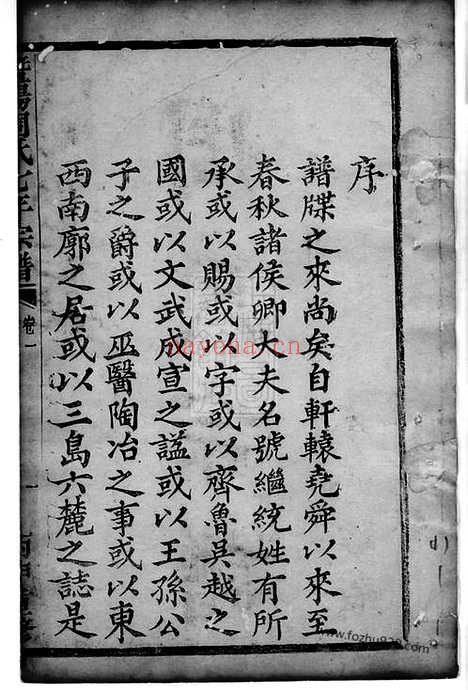 序
譜牒之來尚矣自軒轅堯舜以來至
春秋諸侯卿大夫名號繼統姓有所
承或以賜或以字或以齊魯吳越之
國或以文武成宣之謚或以王孫公
子之爵或以巫醫陶冶之事或以東
西南廓之居或以三島六麓之誌是
宗譜
卷一
一
nayona.cn